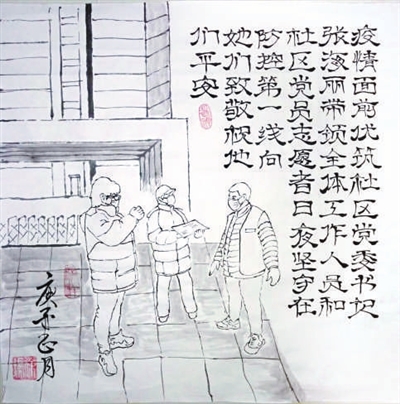 疫情面前优筑社区党委书记
张海丽带领全体工作人员和
社区党员志愿者日夜坚守在
防控第一线向
她们致敬祝他
们平安
庚子正月